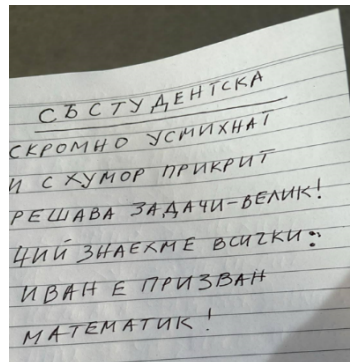 СЪСТУДЕНТСКА
СКРОМНО УСМИХНАТ
И С ХУМОР ПРИКРИТ
РЕШАВА ЗАДАЧИ-ВЕЛИК!
ЧИЙ ЗНАЕХМЕ ВСИЧКИ:
ИВАН Е ПРИЗВАН
МАТЕМАТИК!